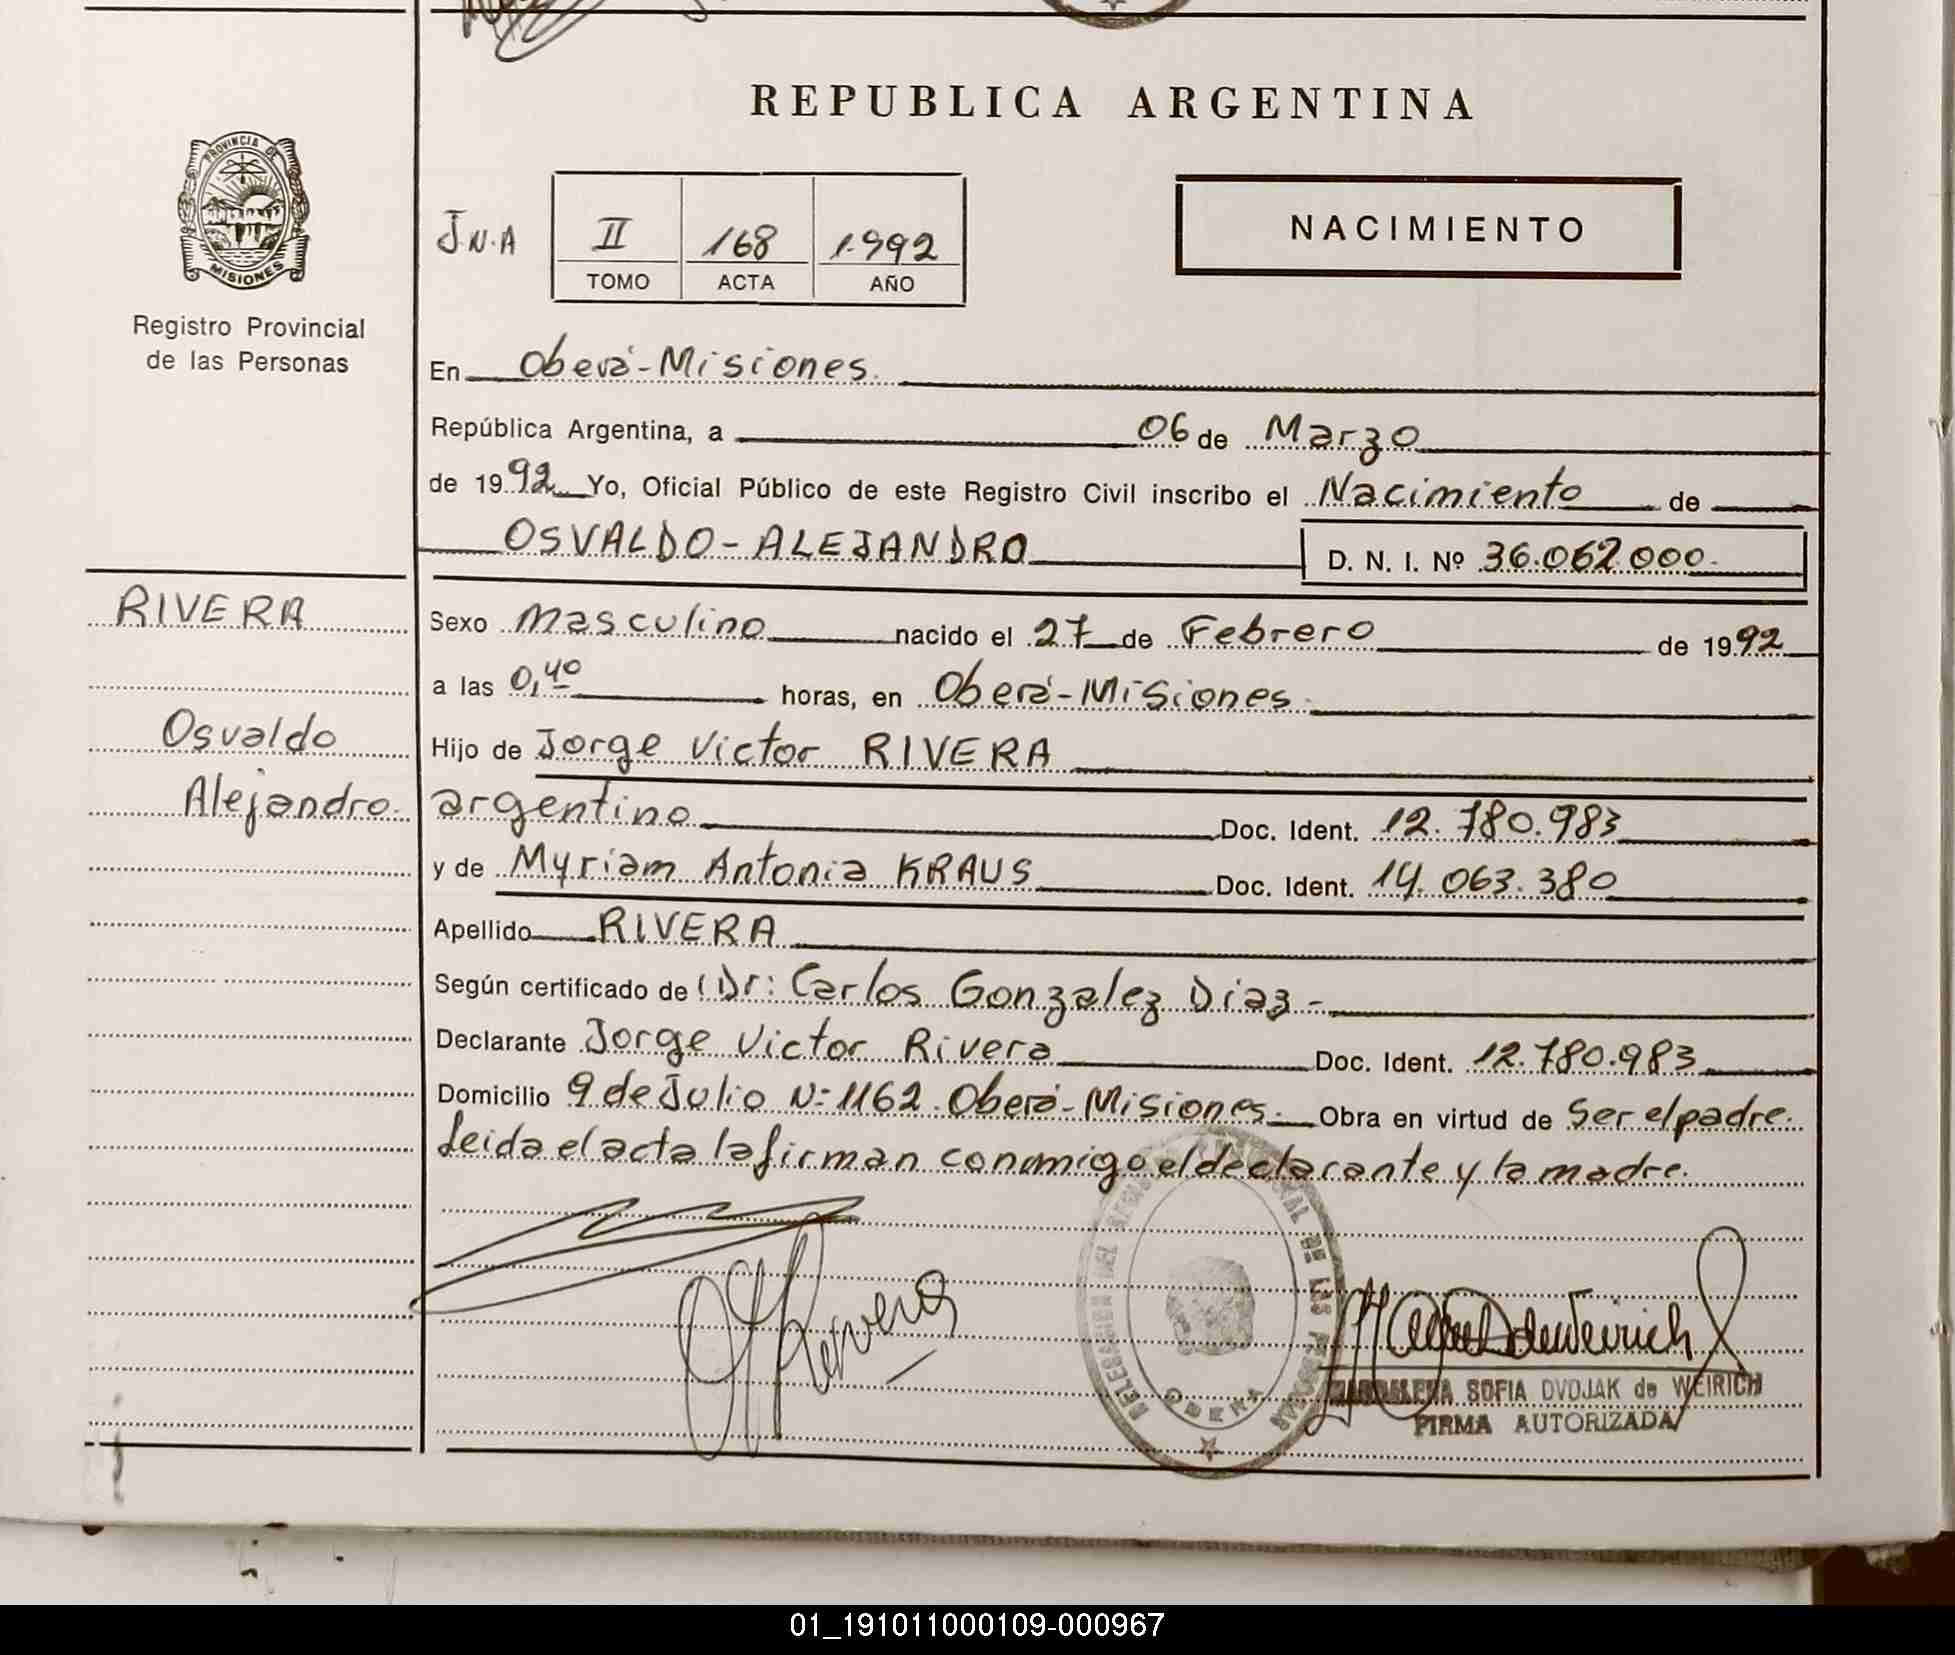 REPUBLICA ARGENTINA
PROVINCIA DE
MISIONES
Registro Provincial
de las Personas
J.N.A
II 168 1.992
TOMO ACTA AÑO
NACIMIENTO
En Oberá-Misiones.
República Argentina, a 06 de Marzo
de 1992 Yo, Oficial Público de este Registro Civil inscribo el Nacimiento de
OSVALDO-ALEJANDRO D. N. I. Nº 36.062.000.
RIVERA
Osvaldo
Alejandro.
Sexo Masculino nacido el 27 de Febrero de 1992
a las 0,40 horas, en Oberá-Misiones.
Hijo de Jorge Victor RIVERA
argentino Doc. Ident. 12.780.983
y de Myriam Antonia KRAUS Doc. Ident. 14.063.380
Apellido RIVERA
Según certificado de Dr: Carlos Gonzalez Diaz-
Declarante Jorge Victor Rivera Doc. Ident. 12.780.983
Domicilio 9 de Julio Nº 1162. Oberá-Misiones. Obra en virtud de Ser el padre.
Leida el acta la firman conmigo el declarante y la madre.
DELEGACION DEL PROVINCIAL DE LAS PERSONAS
OBERA
MAGDALENA SOFIA DVOJAK de WEIRICH
FIRMA AUTORIZADA
01_191011000109-000967